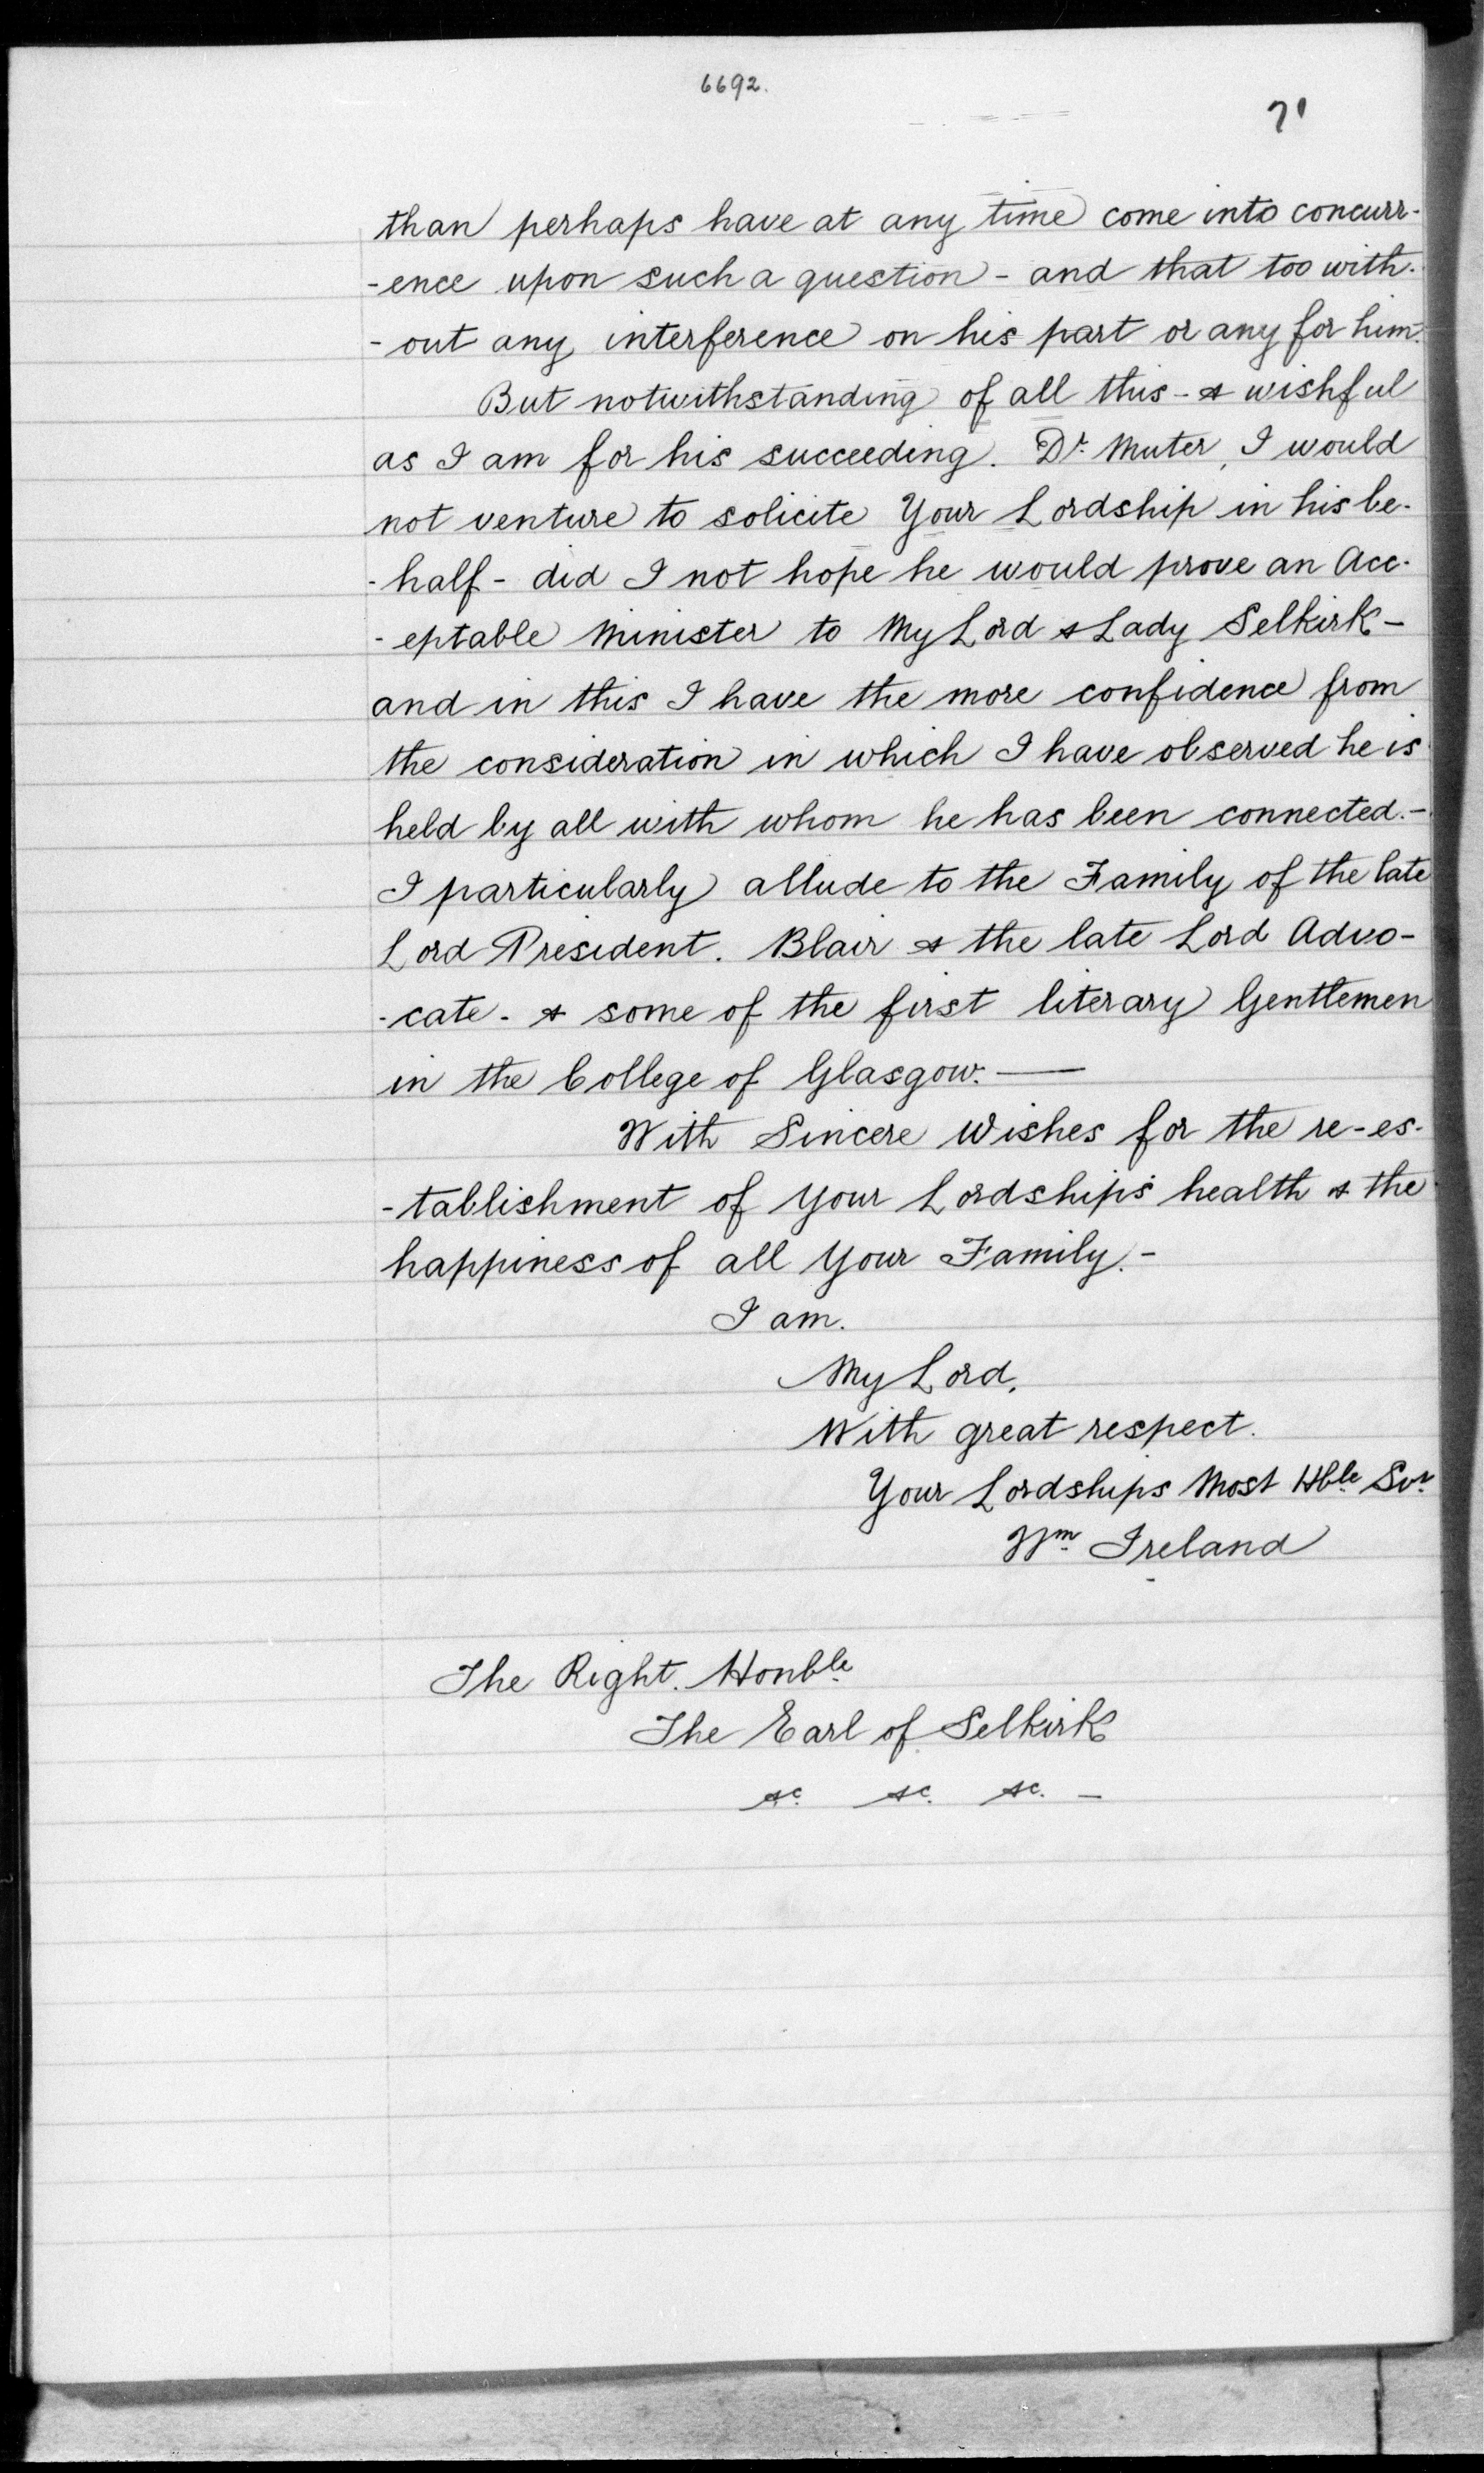 6692.
71
than perhaps have at any time come into concurr-
-ence upon such a question - and that too with-
-out any interference on his part or any for him.
But notwithstanding of all this - & wishful
as I am for his succeeding. Dr. Muter, I would
not venture to solicite Your Lordship in his be-
-half - did I not hope he would prove an Acc-
-eptable Minister to My Lord & Lady Selkirk -
and in this I have the more confidence from
the consideration in which I have observed he is
held by all with whom he has been connected. -
I particularly allude to the Family of the late
Lord President. Blair & the late Lord Advo-
-cate - & some of the first literary Gentlemen
in the College of Glasgow. —
With Sincere Wishes for the re-es-
-tablishment of Your Lordship's health & the
happiness of all Your Family. -
I am.
My Lord,
With great respect.
Your Lordships Most Hble Svr.
Wm Ireland
The Right. Honble
The Earl of Selkirk
&c. &c. &c. -